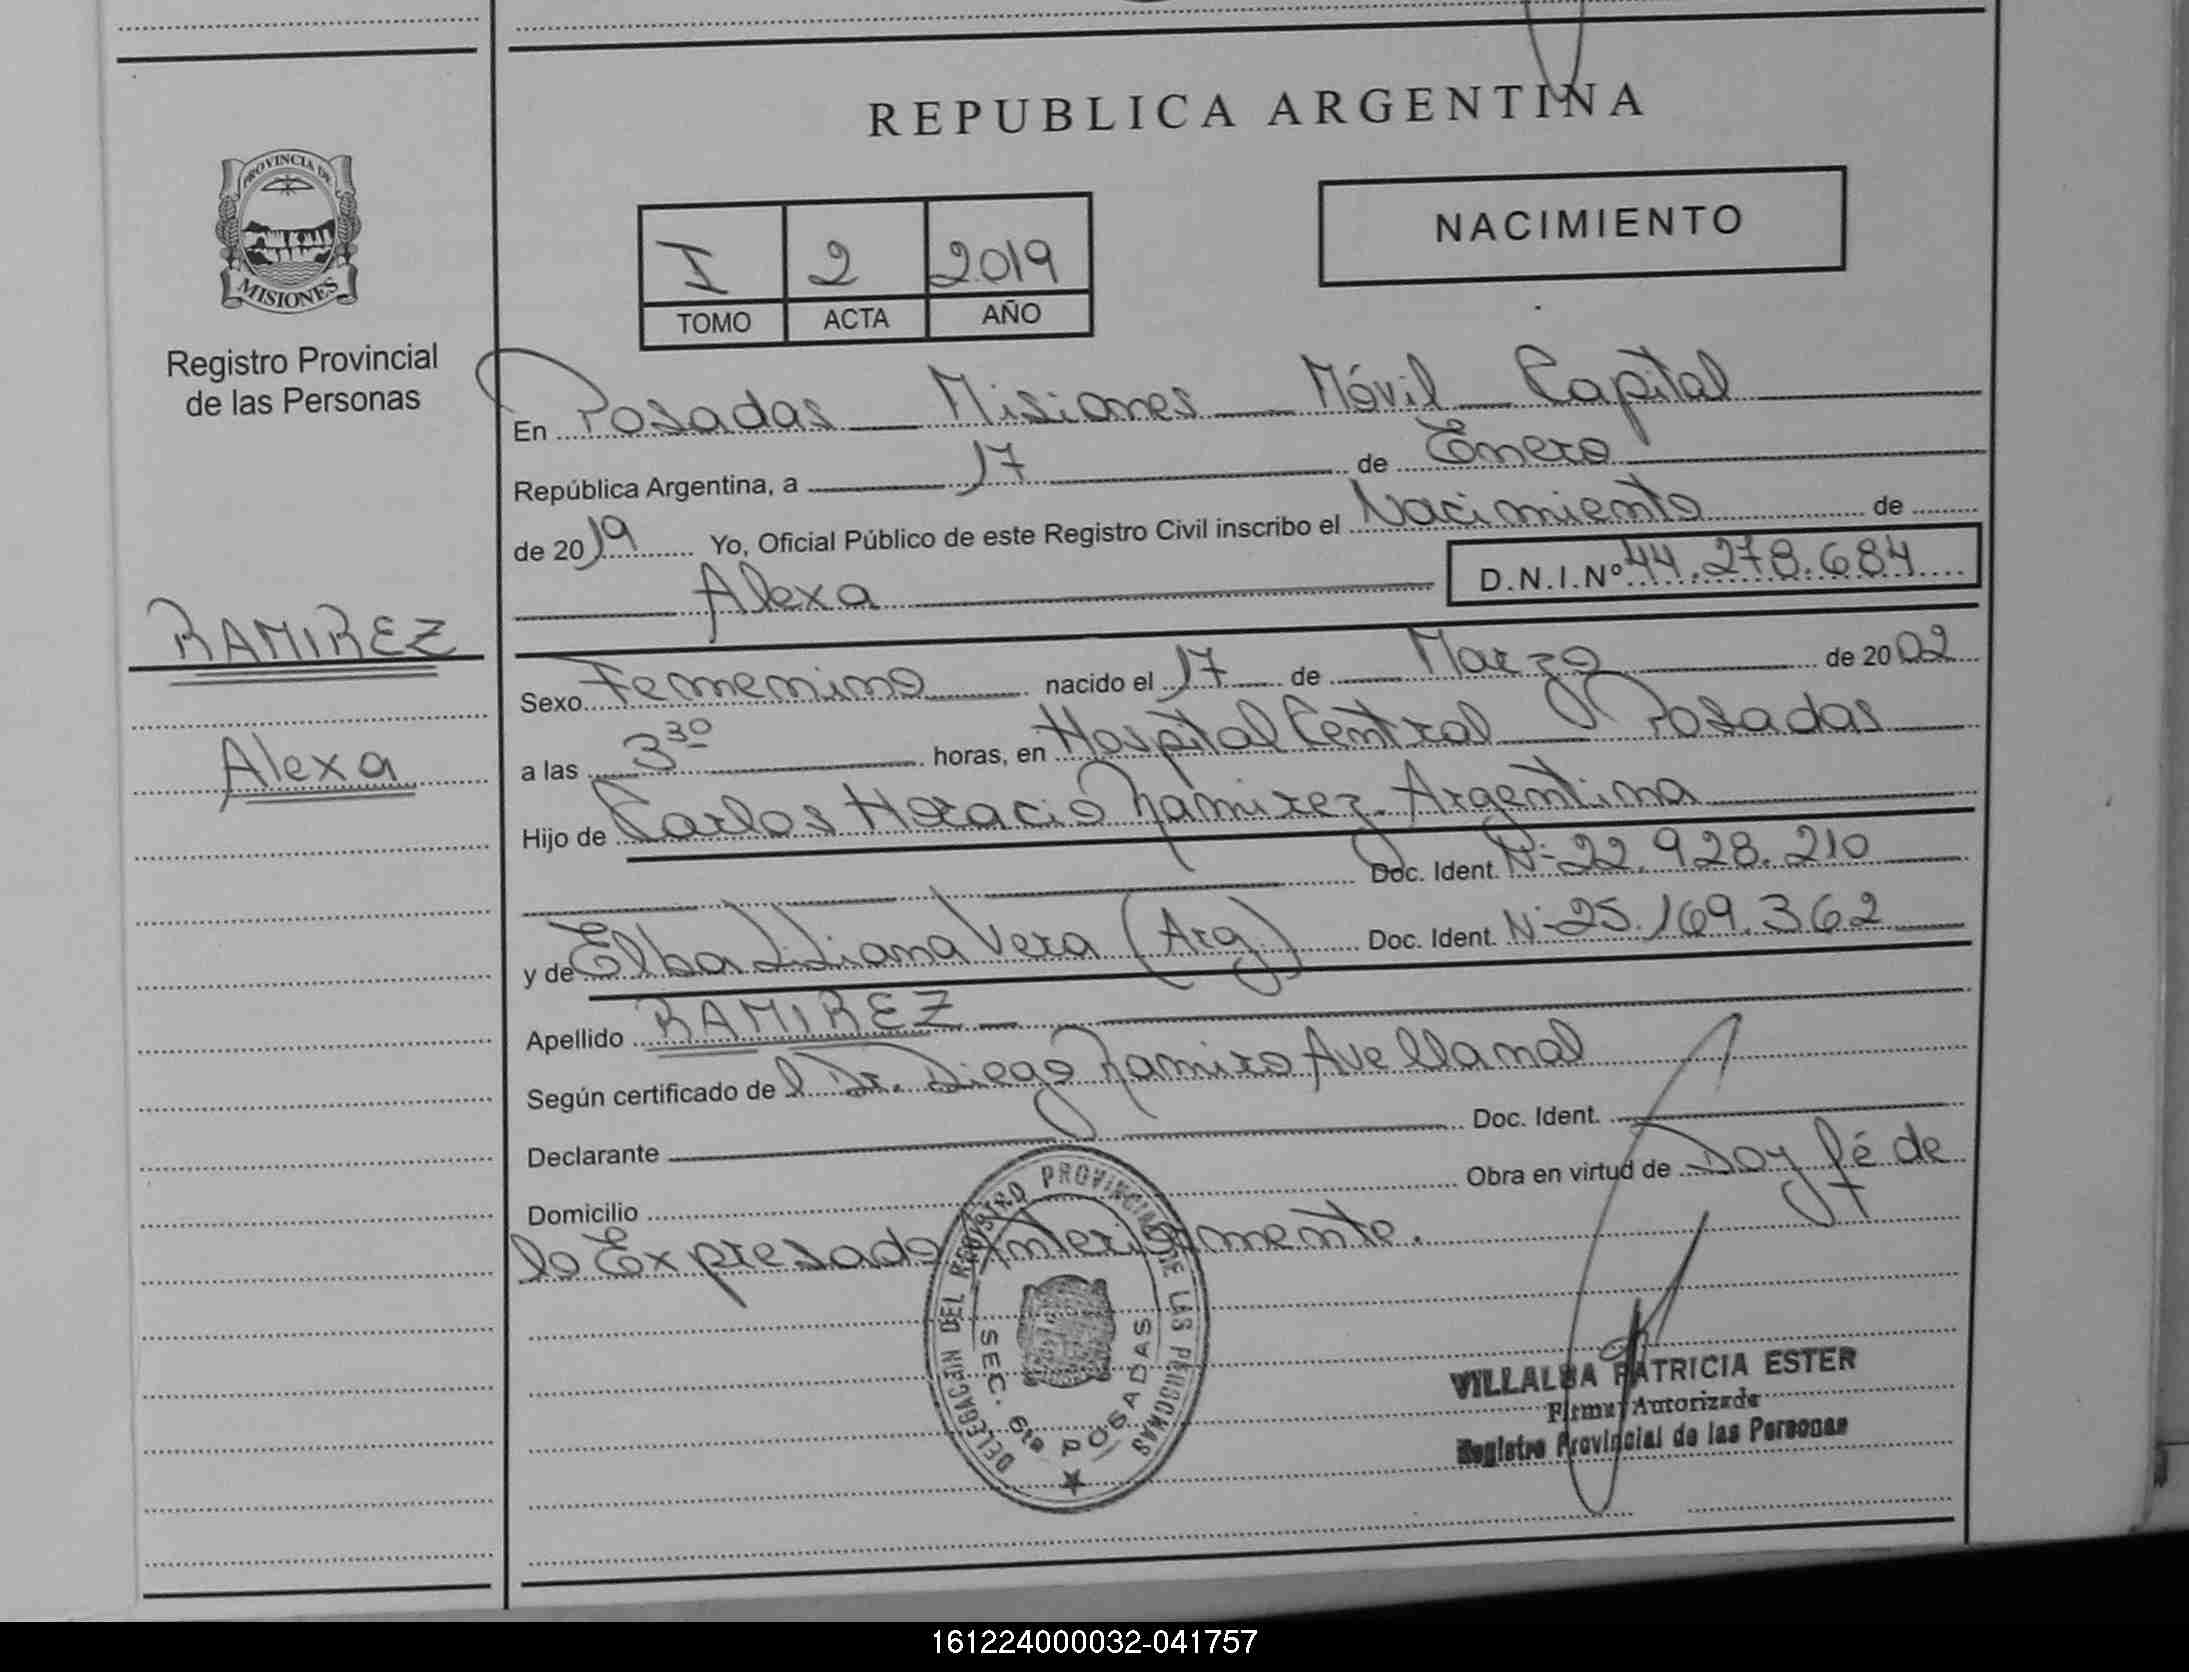 REPUBLICA ARGENTINA
PROVINCIA DE
MISIONES
Registro Provincial
de las Personas
I 2 2019
TOMO ACTA AÑO
NACIMIENTO
En Posadas Misiones Móvil Capital
República Argentina, a 17 de Enero
de 2019 Yo, Oficial Público de este Registro Civil inscribo el Nacimiento de
Alexa D.N.I.Nº 44.278.684
RAMIREZ
Alexa
Sexo Femenino nacido el 17 de Marzo de 2002
a las 3 30 horas, en Hospital Central Posadas
Hijo de Carlos Horacio Ramirez Argentina
Doc. Ident. Nº 22.928.210
y de Elba Liliana Vera (Arg) Doc. Ident. Nº 25.169.362
Apellido RAMIREZ
Según certificado del Dr. Diego Ramiro Avellanal
Declarante Doc. Ident.
Domicilio Obra en virtud de Doy fé de
lo Expresado Anteriormente.
DELEGACIN DEL REGISTRO PROVINCIAL DE LAS PERSONAS
SEC. 6ta POSADAS
VILLALBA PATRICIA ESTER
Firma Autorizada
Registro Provincial de las Personas
161224000032-041757